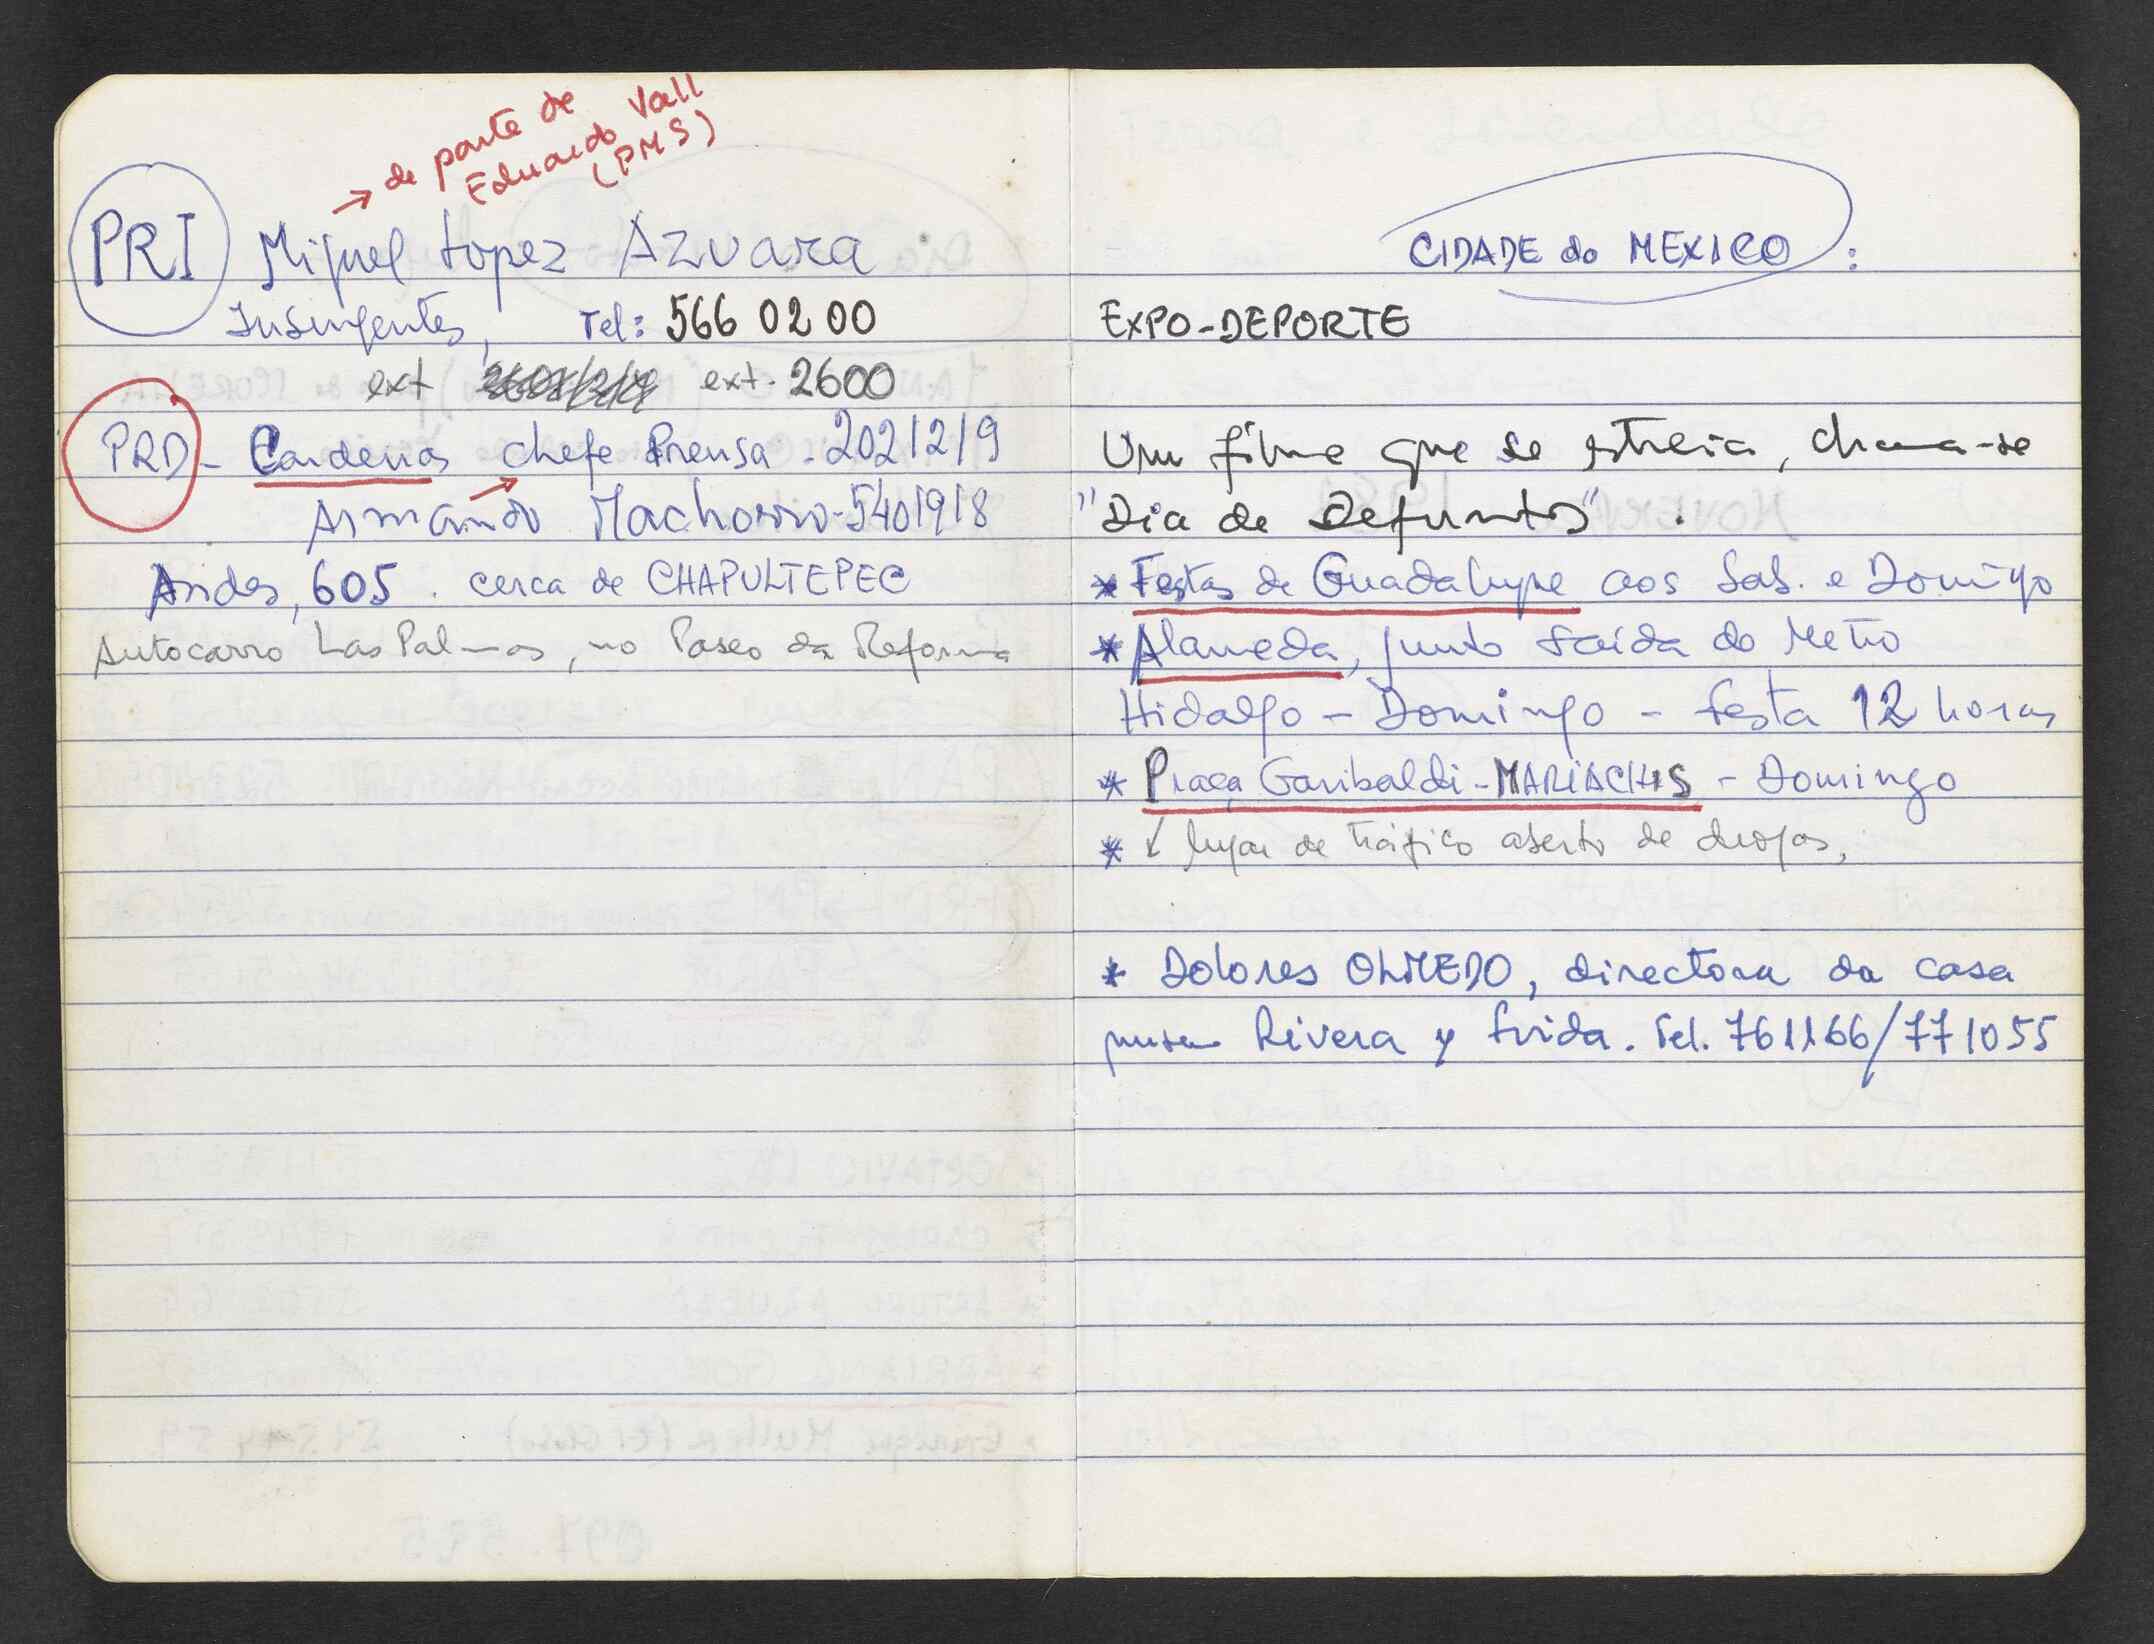 → de parte de
Eduardo Vall
(PMS)
PRI Miguel Lopez Azuara
Insurgentes, Tel: 566 02 00
ext ext. 2600
PRD - Cardenas → chefe Prensa - 202/2/9
Armando Machorro - 540/9/8
Andes, 605. cerca de CHAPULTEPEC
Autocarro Las Palmas, no Paseo da Reforma
CIDADE do MEXICO:
EXPO-DEPORTE
Um filme que se estreia, chama-se
"Dia de Defuntos".
* Festas de Guadalupe aos Sab. e Domingo
* Alameda, junto saída do Metro
Hidalgo - Domingo - festa 12 horas
* Praça Garibaldi - MARIACHIS - Domingo
* ↓ lugar de tráfico aberto de drogas,
* Dolores OLMEDO, directora da casa
museu Rivera y Frida. Tel. 761166/771055